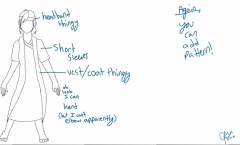 headband
thingy
short
sleeves
vest/coat thingy
oh
look
I can
hand
(but I can't
elbow apparently)
Again,
you
can
add
pattern!